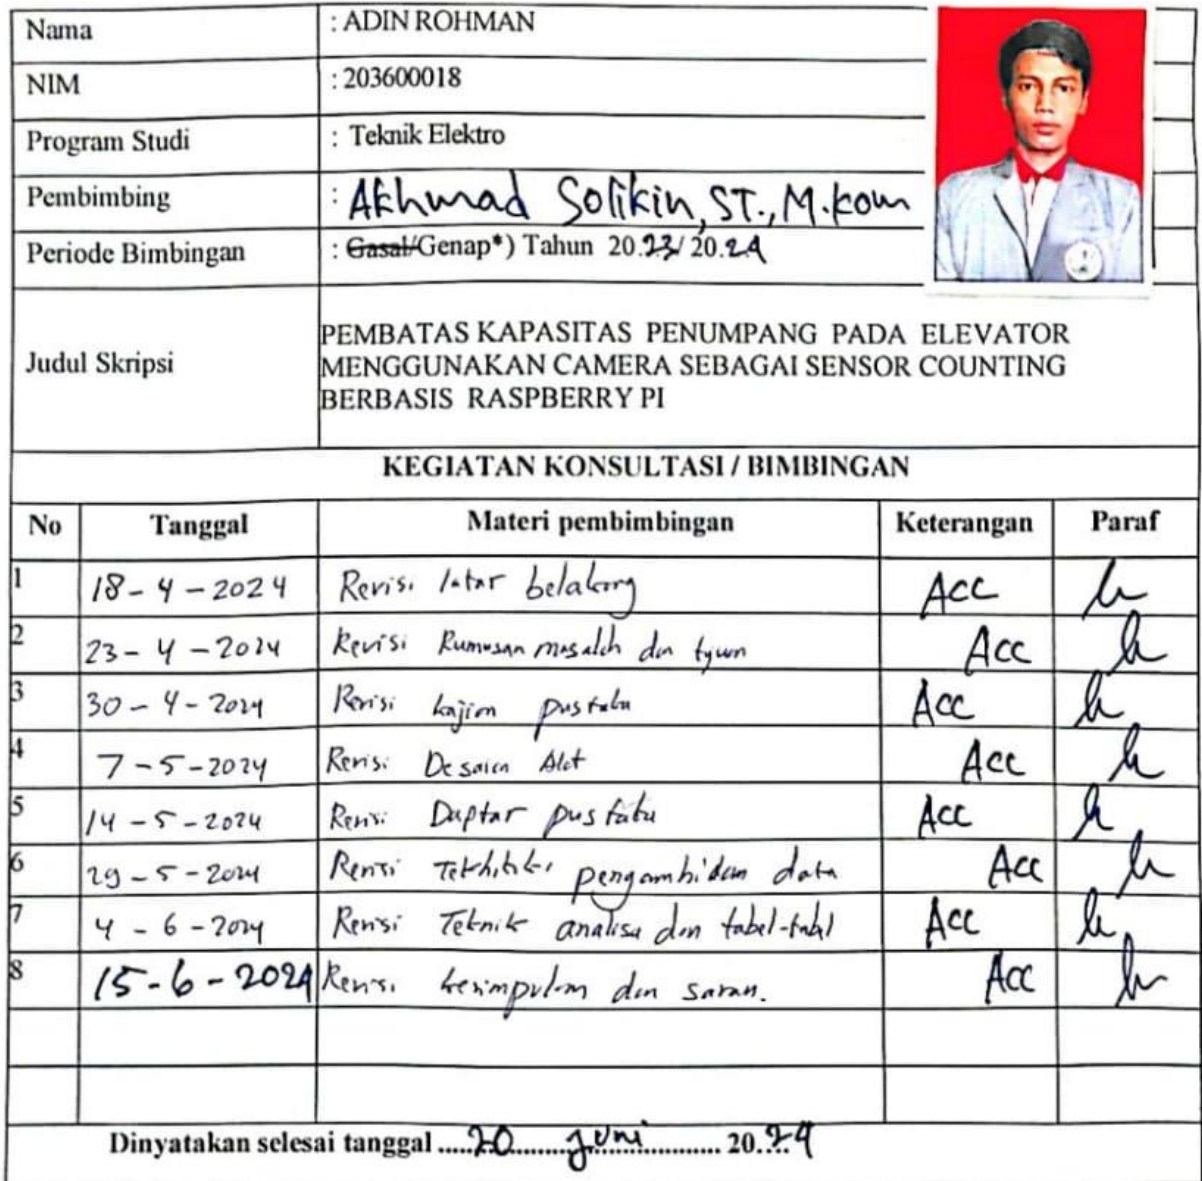 Nama : ADIN ROHMAN
NIM : 203600018
Program Studi : Teknik Elektro
Pembimbing : Akhmad Solikin, ST., M.kom
Periode Bimbingan : Gasal/Genap*) Tahun 20.23/20.24
Judul Skripsi
PEMBATAS KAPASITAS PENUMPANG PADA ELEVATOR
MENGGUNAKAN CAMERA SEBAGAI SENSOR COUNTING
BERBASIS RASPBERRY PI
KEGIATAN KONSULTASI / BIMBINGAN
No Tanggal Materi pembimbingan Keterangan Paraf
1 18-4-2024 Revisi latar belakang Acc
2 23-4-2024 Revisi Rumusan masalah dan tujuan Acc
3 30-4-2024 Revisi kajian pustaka Acc
4 7-5-2024 Revisi Desain Alat Acc
5 14-5-2024 Revisi Daptar pustaka Acc
6 29-5-2024 Revisi pengambilan data Acc
7 4-6-2024 Revisi Teknik analisa dan tabel-tabel Acc
8 15-6-2024 Revisi kesimpulan dan saran. Acc
Dinyatakan selesai tanggal .....20.......juni............ 20..24